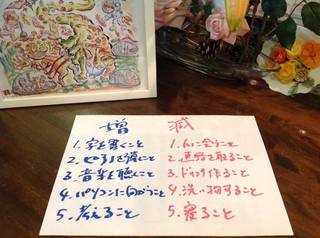 増
1. 字を書くこと
2. を読むこと
3. 音楽を聴くこと
4. パソコンに向かうこと
5. 考えること
減
1. 人に会うこと
2. を取ること
3. 作ること
4. 洗い物すること
5. 寝ること